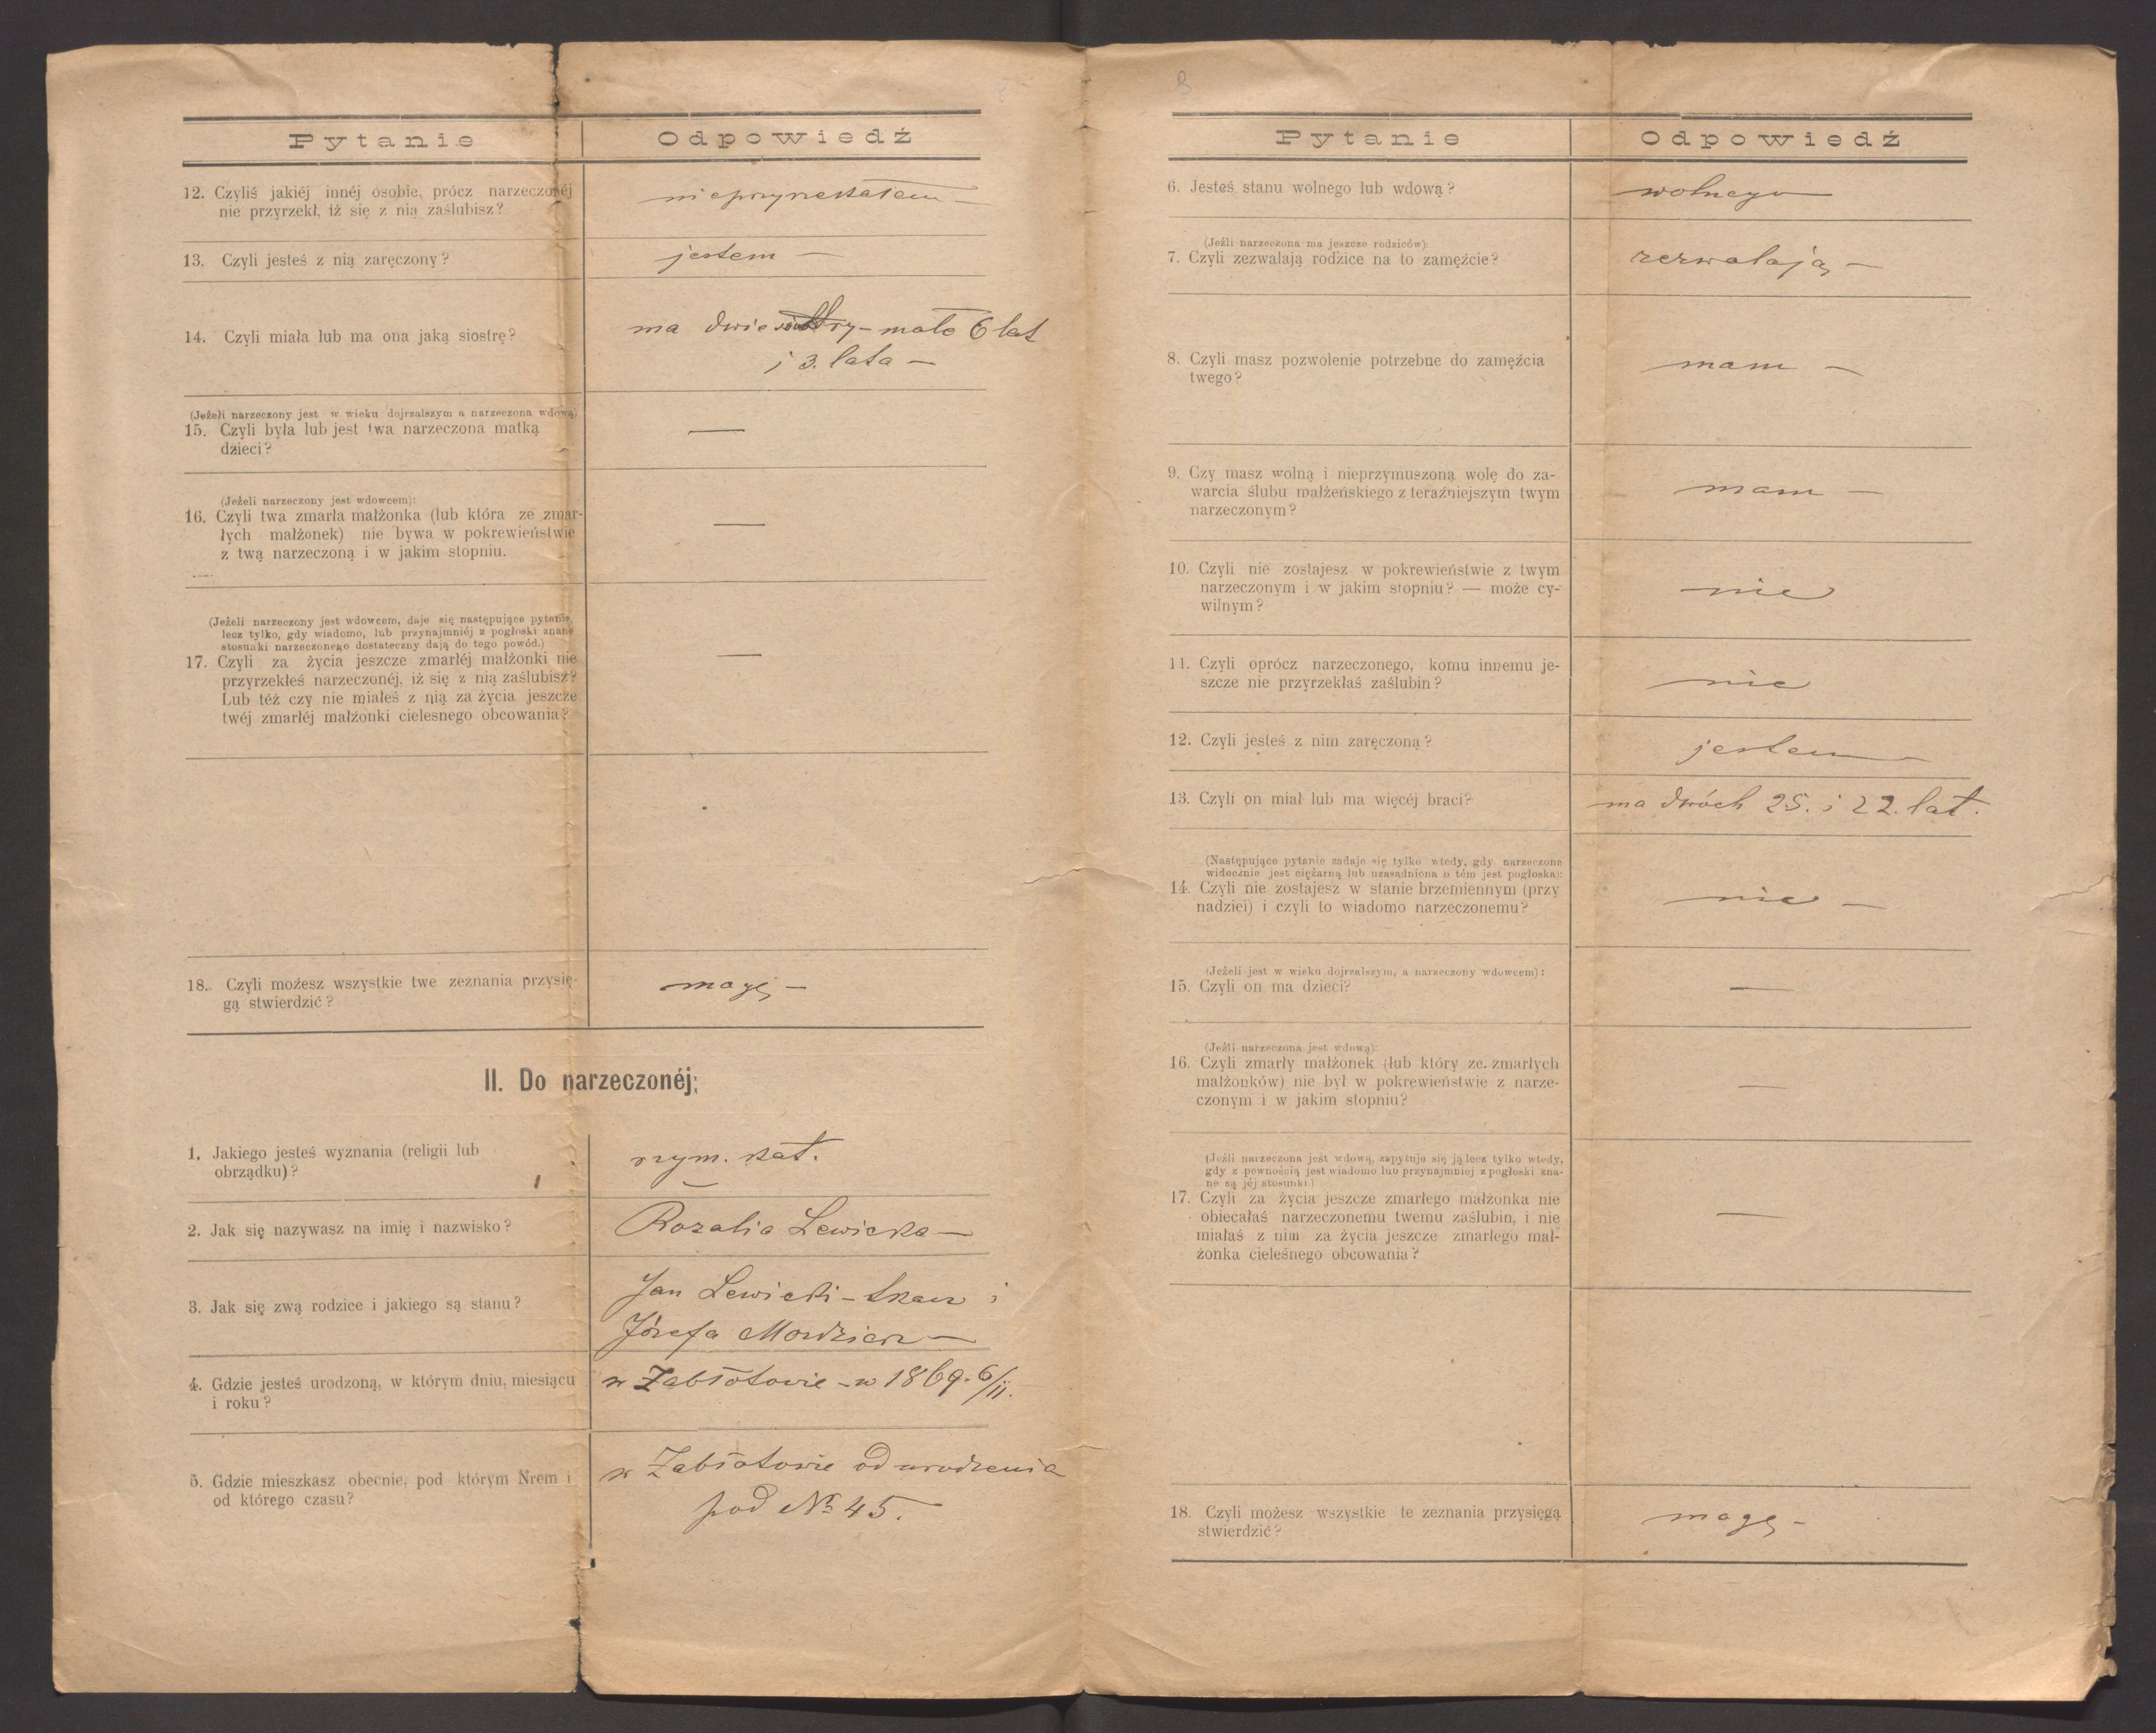 Pytanie Odpowiedź
12. Czyliś jakiéj innéj osobie, prócz narzeczonéj
nie przyrzekł, iż się z nią zaślubisz?
nieprzyrzekałem —
13. Czyli jesteś z nią zaręczony?
jestem —
14. Czyli miała lub ma ona jaką siostrę?
ma dwie siostry — małe 6 lat
i 3. lata —
(Jeżeli narzeczony jest w wieku dojrzalszym a narzeczona wdową)
15. Czyli była lub jest twa narzeczona matką
dzieci?
—
(Jeżeli narzeczony jest wdowcem):
16. Czyli twa zmarła małżonka (lub która ze zmar-
łych małżonek) nie bywa w pokrewieństwie
z twą narzeczoną i w jakim stopniu.
—
(Jeżeli narzeczony jest wdowcem, daje się następujące pytanie,
lecz tylko, gdy wiadomo, lub przynajmniéj z pogłoski znane
stosunki narzeczonego dostateczny dają do tego powód.)
17. Czyli za życia jeszcze zmarłéj małżonki nie
przyrzekłeś narzeczonéj, iż się z nią zaślubisz?
Lub téż czy nie miałeś z nią za życia jeszcze
twéj zmarłéj małżonki cielesnego obcowania?
—
18. Czyli możesz wszystkie twe zeznania przysię-
gą stwierdzić?
mogę —
II. Do narzeczonéj:
1. Jakiego jesteś wyznania (religii lub
obrządku)?
rzym. kat.
2. Jak się nazywasz na imię i nazwisko?
Rozalia Lewicka —
3. Jak się zwą rodzice i jakiego są stanu?
Jan Lewicki — tkacz i
Józefa —
4. Gdzie jesteś urodzoną, w którym dniu, miesiącu
i roku?
w Zabłotowie — w 1869. 6/11.
5. Gdzie mieszkasz obecnie, pod którym Nrem i
od którego czasu?
w Zabłotowie od urodzenia
pod № 45.
Pytanie Odpowiedź
6. Jesteś stanu wolnego lub wdową?
wolnego
(Jeźli narzeczona ma jeszcze rodziców):
7. Czyli zezwalają rodzice na to zamęźcie?
zezwalają —
8. Czyli masz pozwolenie potrzebne do zamęźcia
twego?
mam —
9. Czy masz wolną i nieprzymuszoną wolę do za-
warcia ślubu małżeńskiego z teraźniejszym twym
narzeczonym?
mam —
10. Czyli nie zostajesz w pokrewieństwie z twym
narzeczonym i w jakim stopniu? — może cy-
wilnym?
nie
11. Czyli oprócz narzeczonego, komu innemu je-
szcze nie przyrzekłaś zaślubin?
nie
12. Czyli jesteś z nim zaręczoną?
jestem —
13. Czyli on miał lub ma więcéj braci?
ma dwóch 25. i 22. lat.
(Następujące pytanie zadaje się tylko wtedy, gdy narzeczona
widocznie jest ciężarną lub uzasadniona o tém jest pogłoska):
14. Czyli nie zostajesz w stanie brzemiennym (przy
nadziei) i czyli to wiadomo narzeczonemu?
nie —
(Jeżeli jest w wieku dojrzalszym, a narzeczony wdowcem):
15. Czyli on ma dzieci?
—
(Jeźli narzeczona jest wdową):
16. Czyli zmarły małżonek (lub który ze zmarłych
małżonków) nie był w pokrewieństwie z narze-
czonym i w jakim stopniu?
—
(Jeźli narzeczona jest wdową, zapytuje się ją lecz tylko wtedy,
gdy z pewnością jest wiadomo lub przynajmniej z pogłoski zna-
ne są jéj stosunki.)
17. Czyli za życia jeszcze zmarłego małżonka nie
obiecałaś narzeczonemu twemu zaślubin, i nie
miałaś z nim za życia jeszcze zmarłego mał-
żonka cieleśnego obcowania?
—
18. Czyli możesz wszystkie te zeznania przysięgą
stwierdzić?
mogę —